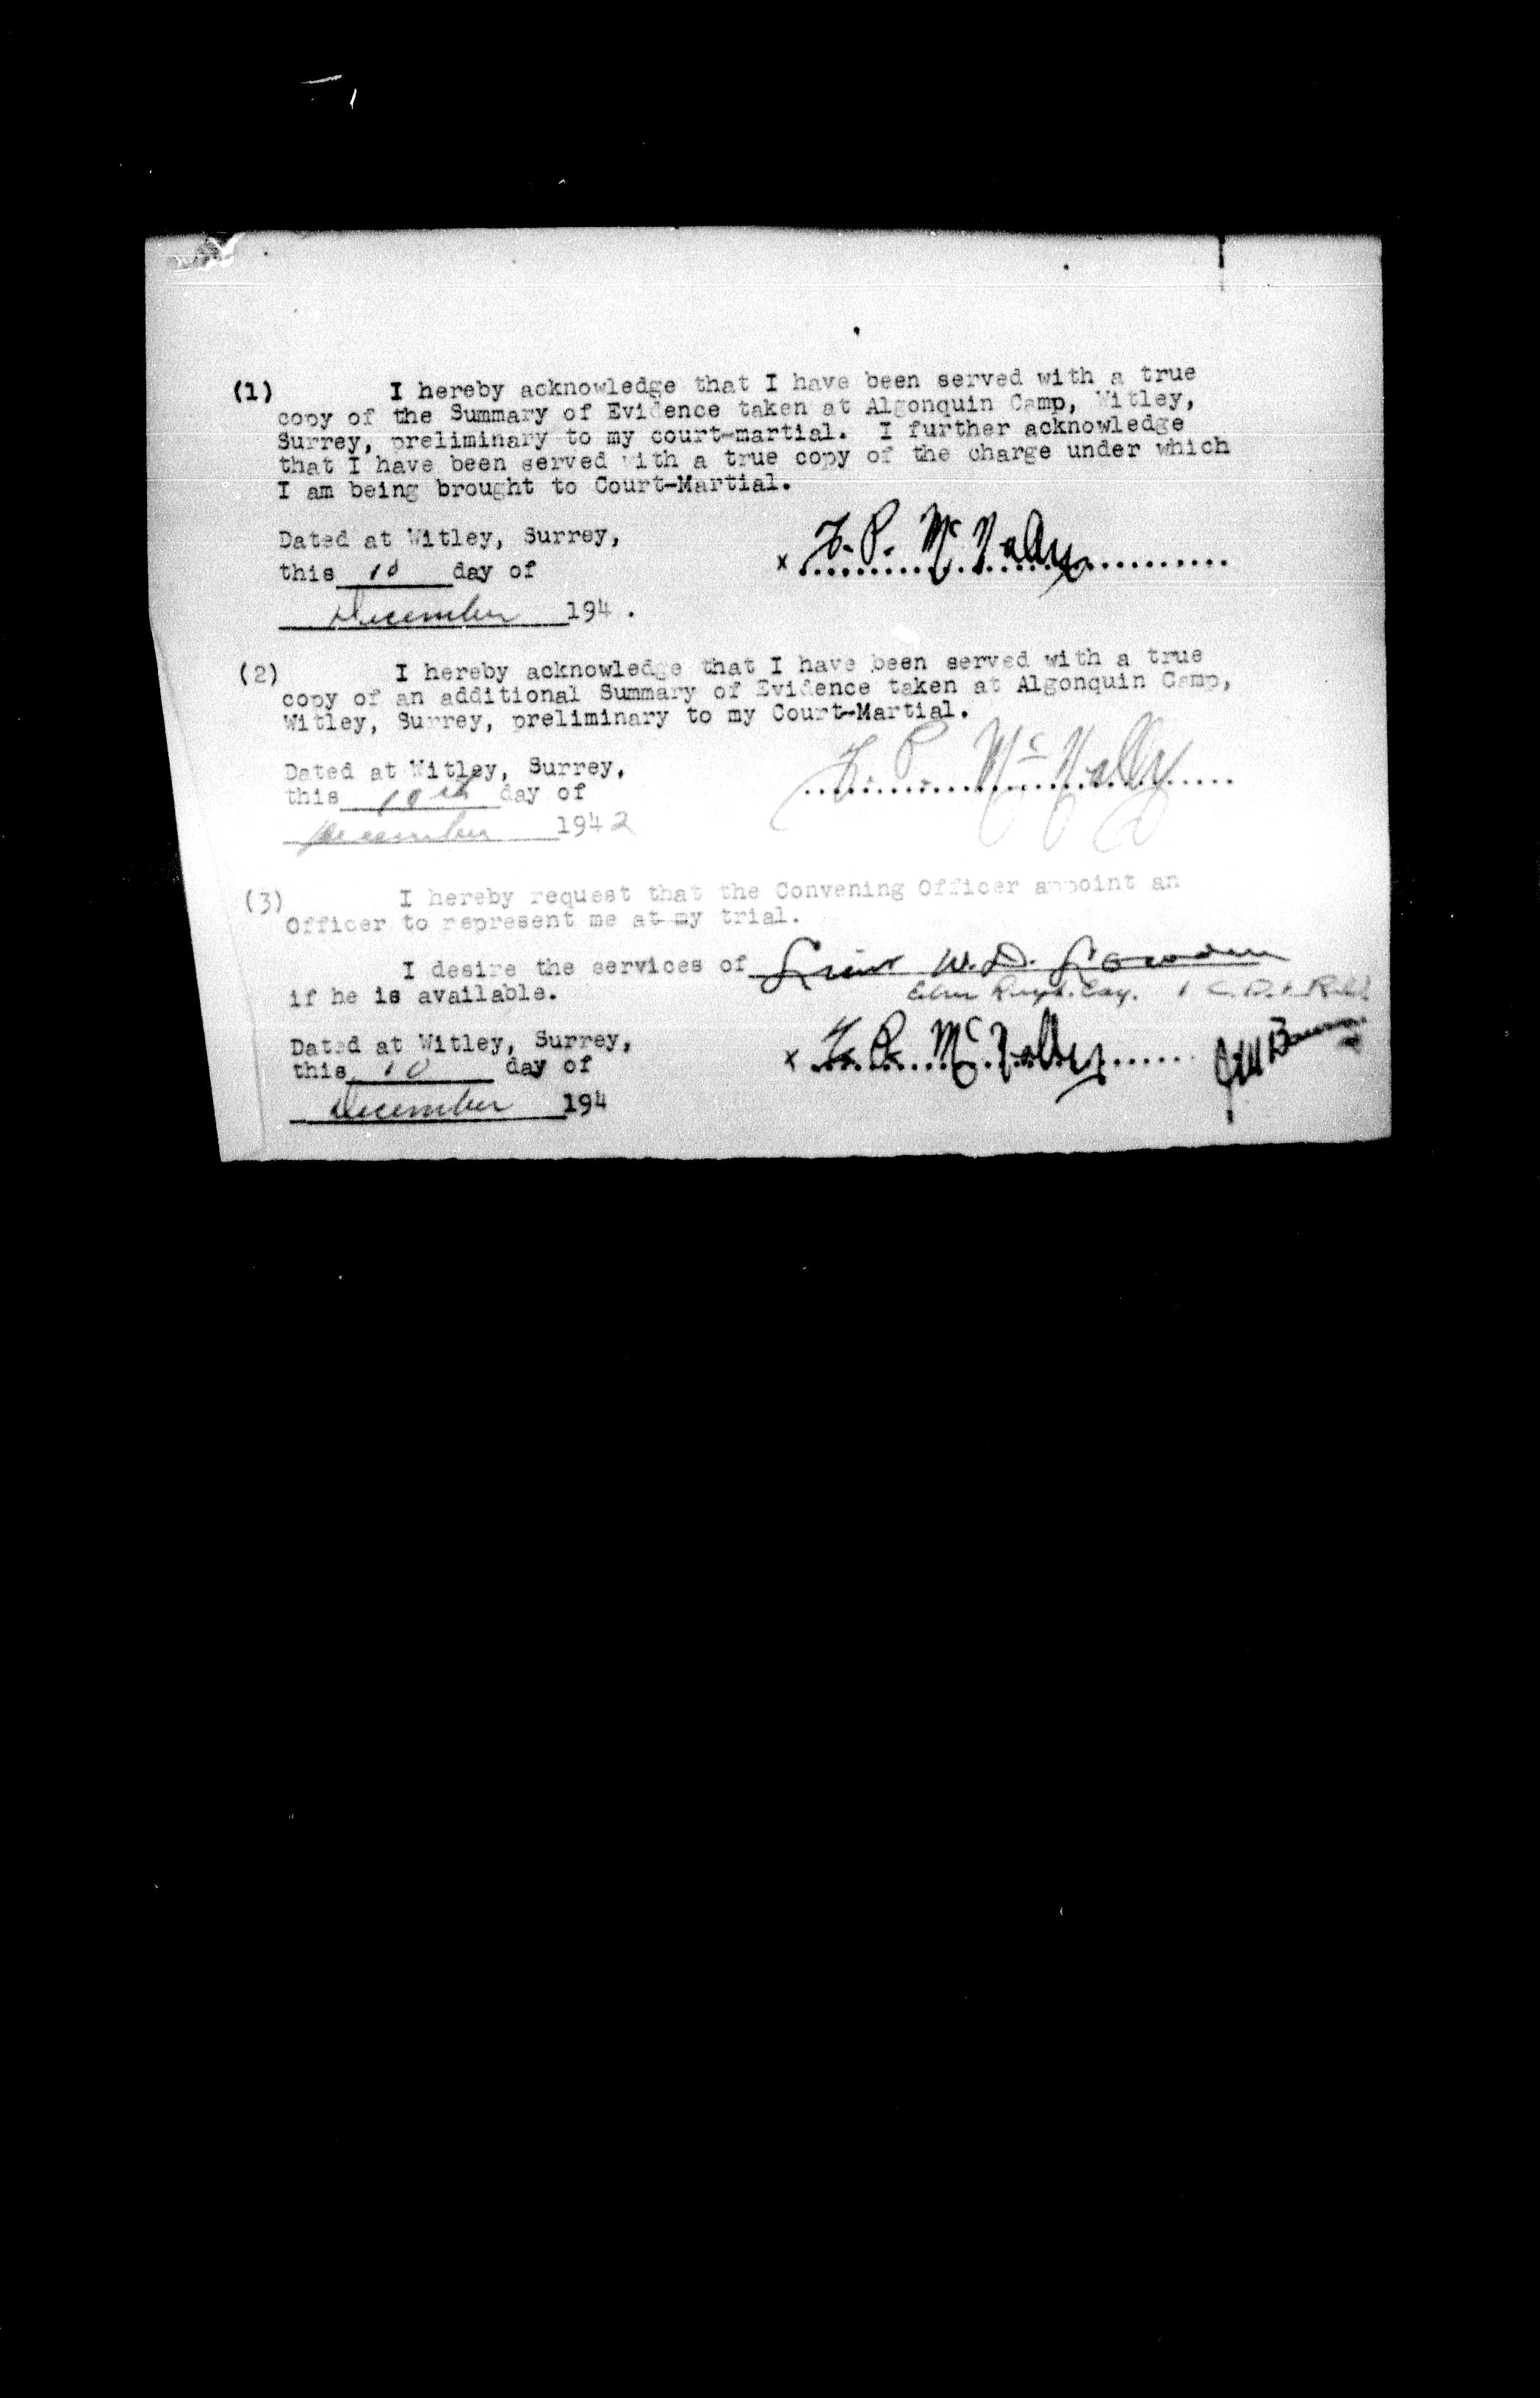 (1) I hereby acknowledge that I have been served with a true
copy of the Summary of Evidence taken at Algonquin Camp, Witley,
Surrey, preliminary to my court-martial. I further acknowledge
that I have been served with a true copy of the charge under which
I am being brought to Court-Martial.
Dated at Witley, Surrey,
this 10 day of
x F. P. McNally
December 194 .
(2) I hereby acknowledge that I have been served with a true
copy of an additional Summary of Evidence taken at Algonquin Camp,
Witley, Surrey, preliminary to my Court-Martial.
Dated at Witley, Surrey,
this 10th day of
F. P. McNally
December 1942
(3) I hereby request that the Convening Officer appoint an
Officer to represent me at my trial.
I desire the services of Lieut W. D.
if he is available.
Dated at Witley, Surrey,
this 10 day of
x F. P. McNally
December 194